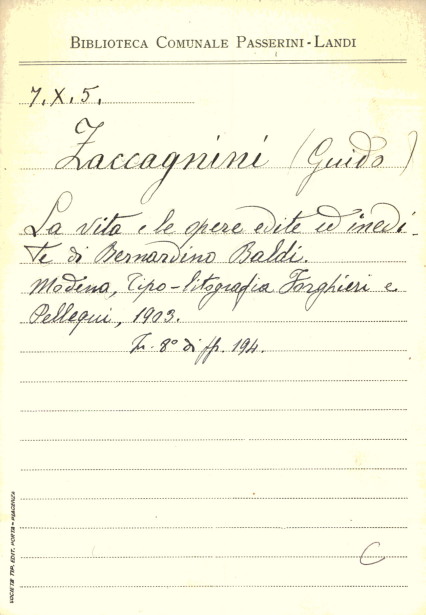 BIBLIOTECA COMUNALE PASSERINI-LANDI
7.X.5.
Zaccagnini (Guido)
La vita e le opere edite ed inedi-
te di Bernardino Baldi.
Modena, Tipo-litografia Forghieri e
Pellequi, 1903.
In-8° di pp. 194.
C
SOCIETÀ TIP. EDIT. PORTA - PIACENZA